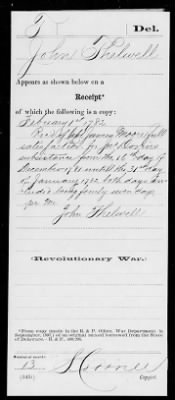 T Del.
John Thelwell
Appears as shown below on a
Receipt*
of which the following is a copy:
February 1st 1782
Recd of Capt James Moore full
satisfaction for
subsistance from the 16th day of
December 1781 until the 31st day
of January 1782 both days In-
cluded being forty seven days
per me
John Thelwell
Revolutionary War.
*From copy made in the R. & P. Office, War Department, in
September, 1897, of an original record borrowed from the State
of Delaware.—R. & P.
Copyist.